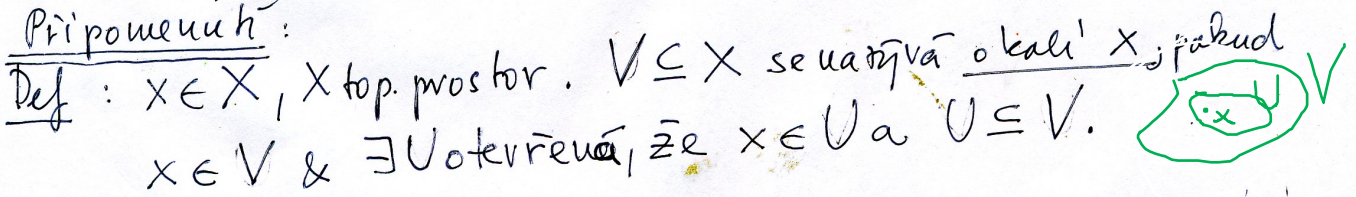 Připomenutí:
Def: x ∈ X, X top. prostor. V ⊆ X se nazývá okolí x, pokud
x ∈ V & ∃ U otevřená, že x ∈ U a U ⊆ V.
x U V